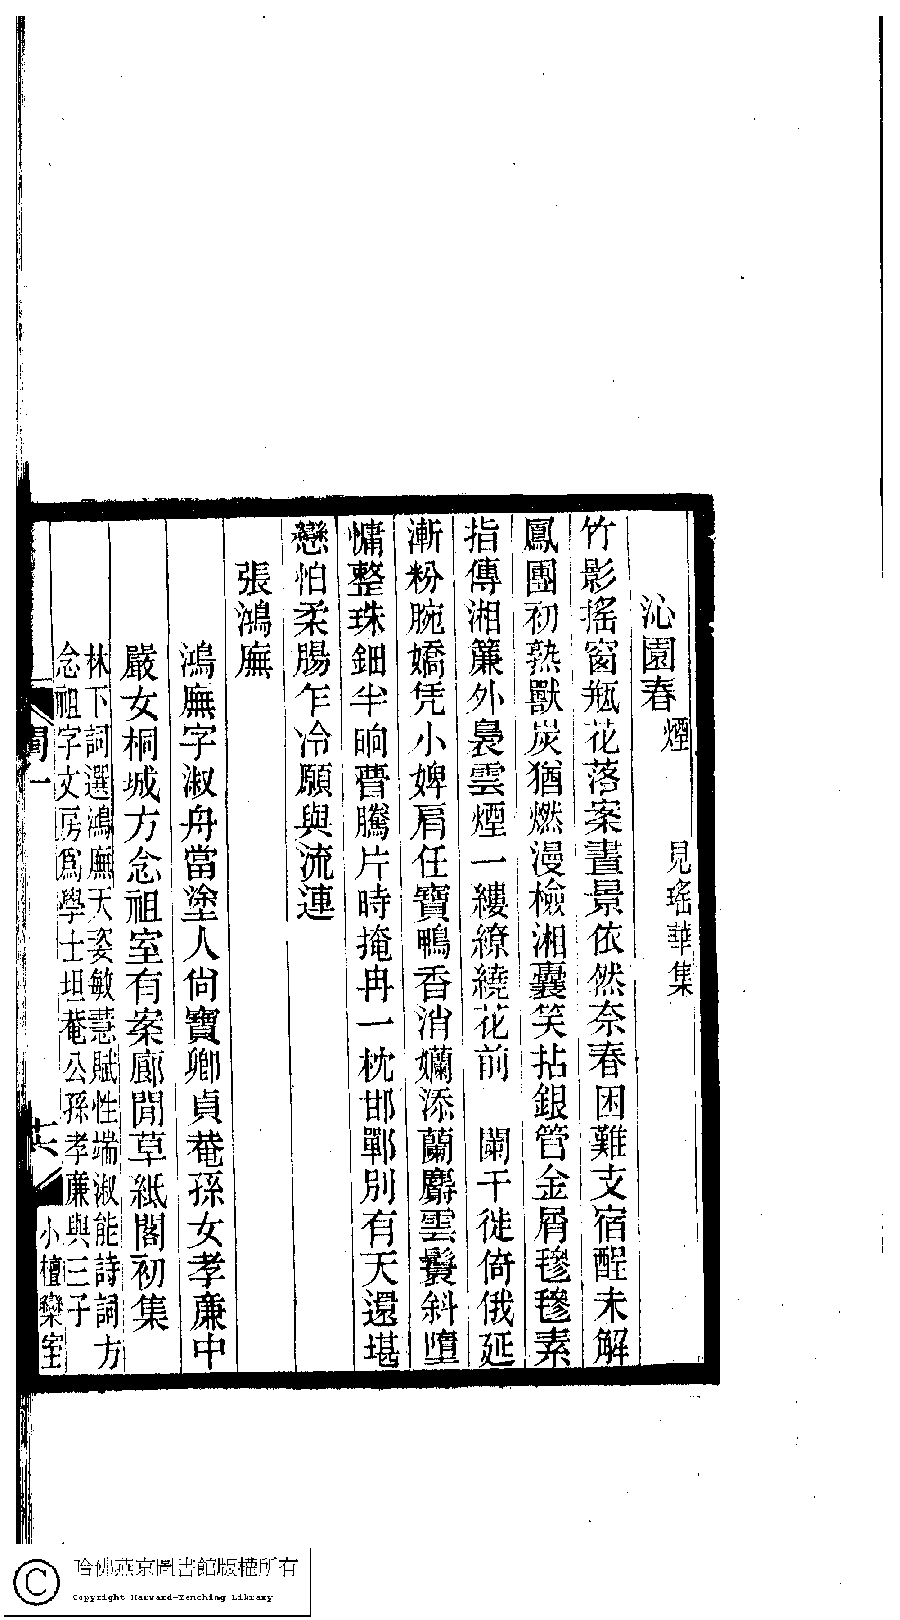 沁園春 煙 見瑤華集
竹影搖窗瓶花落案晝景依然奈春困難支宿酲未解
鳳團初熟獸炭猶燃漫檢湘囊笑拈銀管金屑毿毿素
指傳湘簾外裊雲煙一縷繚繞花前 闌干徙倚俄延
漸粉腕嬌凭小婢肩任寶鴨香消嬾添蘭麝雲鬟斜墮
慵整珠鈿半晌瞢騰片時掩冉一枕邯鄲別有天還堪
戀怕柔腸乍冷願與流連
張鴻廡
鴻廡字淑舟當塗人尙寶卿貞菴孫女孝廉中
嚴女桐城方念祖室有案廊閒草紙閣初集
林下詞選鴻廡天姿敏慧賦性端淑能詩詞方
念祖字文房爲學士坦菴公孫孝廉與三子
閨一 十六 小檀欒室
哈佛燕京圖書館版權所有
Copyright Harvard-Yenching Library